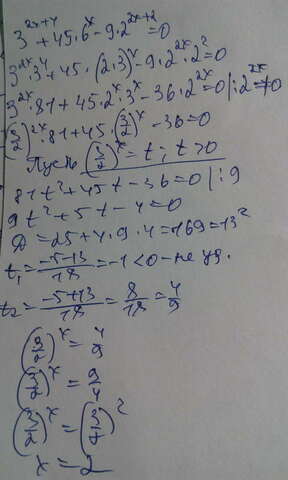 3^{2x+4} + 45·6^x - 9·2^{2x+2} = 0
3^{2x}·3^4 + 45·(2·3)^x - 9·2^{2x}·2^2 = 0
3^{2x}·81 + 45·2^x·3^x - 36·2^{2x} = 0 |:2^{2x} ≠ 0
(3/2)^{2x}·81 + 45·(3/2)^x - 36 = 0
Пусть (3/2)^x = t; t > 0
81t^2 + 45t - 36 = 0 |:9
9t^2 + 5t - 4 = 0
D = 25 + 4·9·4 = 169 = 13^2
t_1 = (-5-13)/18 = -1 < 0 - не уд.
t_2 = (-5+13)/18 = 8/18 = 4/9
(3/2)^x = 4/9
(3/2)^x = 9/4
(3/2)^x = (3/2)^2
x = 2